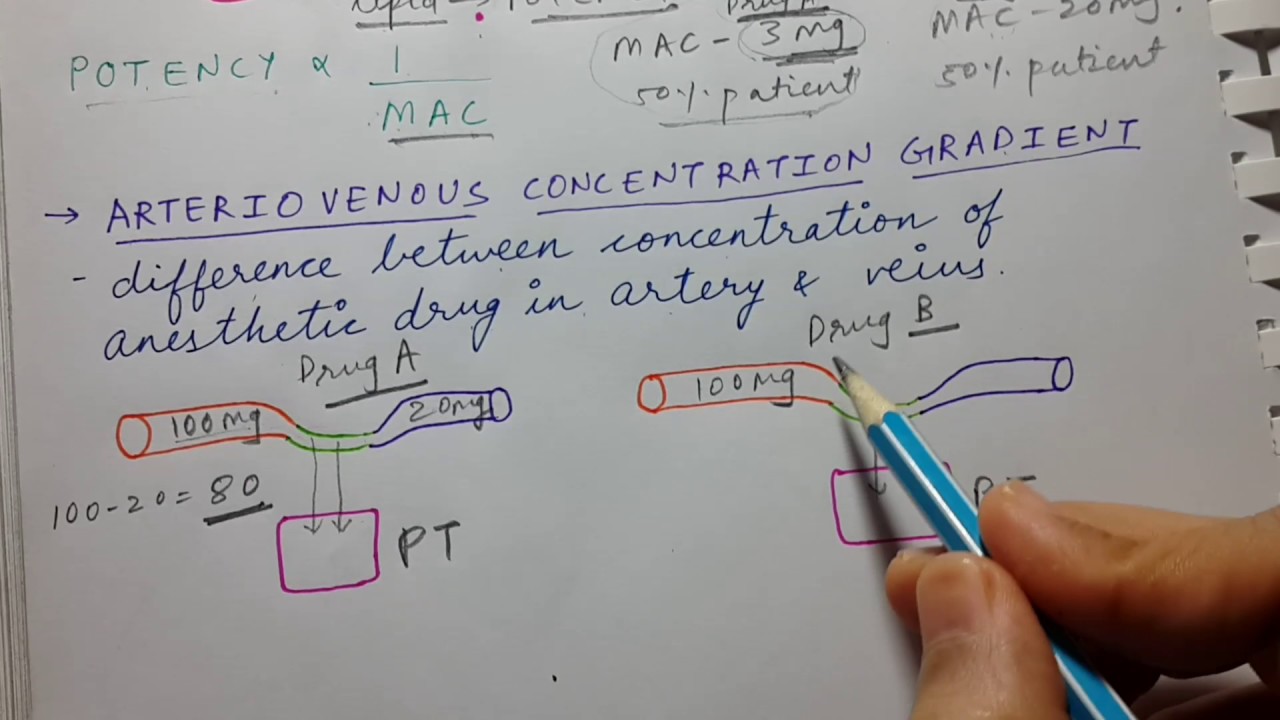 POTENCY ∝ 1
MAC
MAC - 3 mg
50% patient
MAC - 20mg.
50% patient
→ ARTERIOVENOUS CONCENTRATION GRADIENT
- difference between concentration of
anesthetic drug in artery & veins.
Drug A
100mg
20mg
100-20= 80
PT
Drug B
100mg